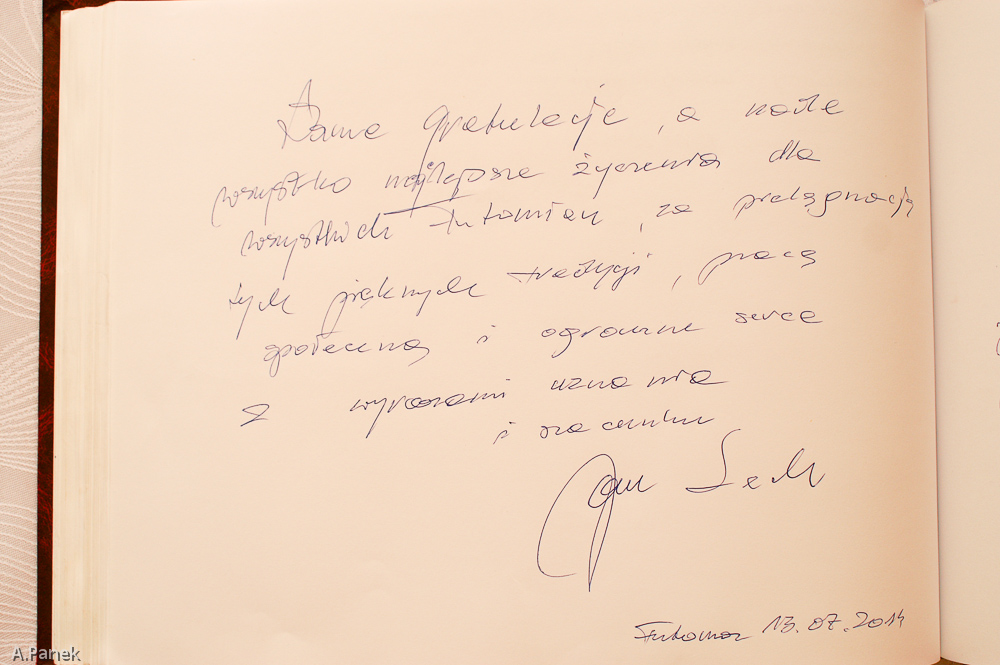 Same gratulacje, a nade
wszystko najlepsze życzenia dla
wszystkich Futomian, za pielęgnację
tych pięknych tradycji, pracę
społeczną i ogromne serce
z wyrazami uznania
i szacunku
Jan Lech
Futoma 13.07.2014
A.Panek